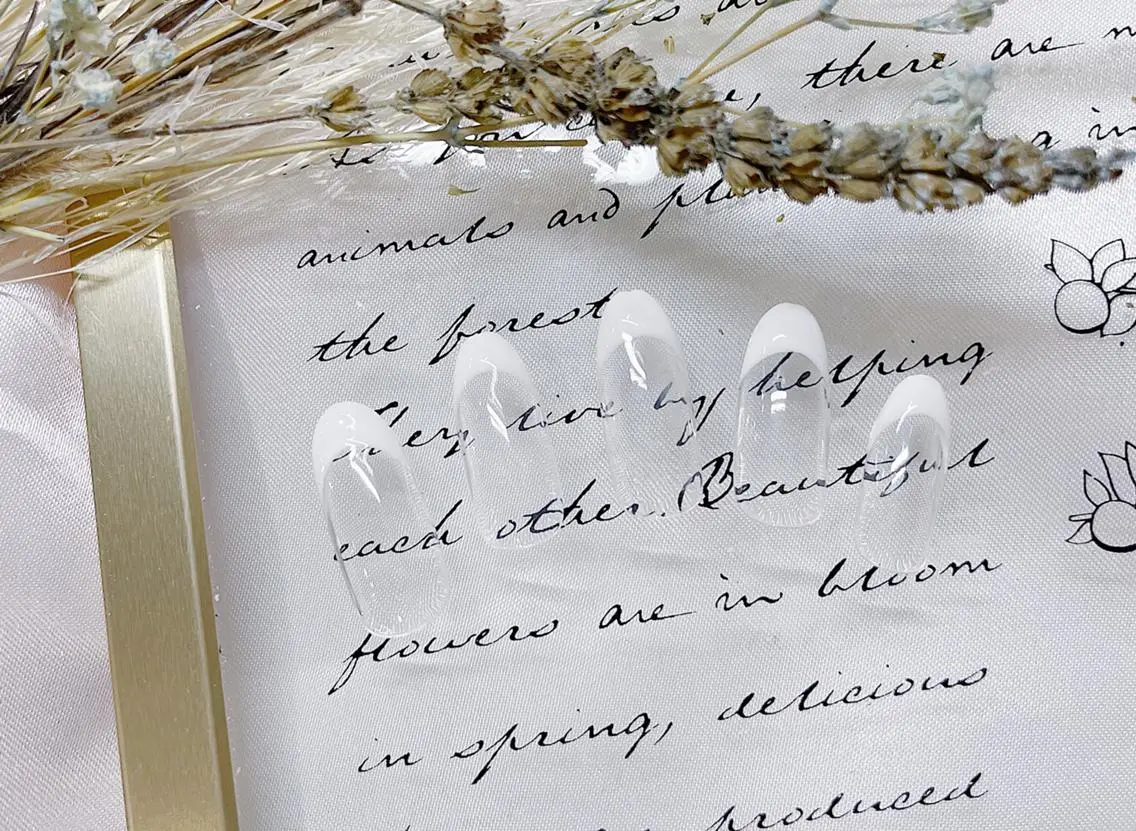 there are
in
animals and
the forest
They live by helping
each other. Beautiful
flowers are in bloom
in spring, delicious
produced